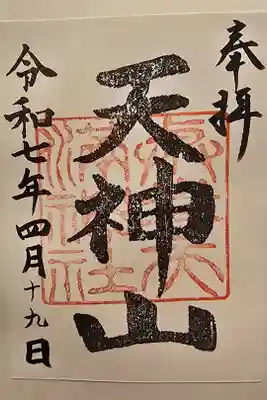 奉拝
天神山
令和七年四月十九日